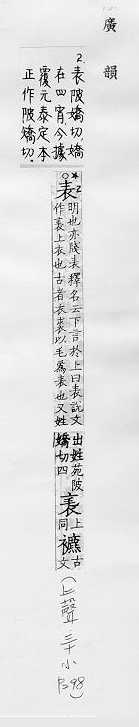 廣韻
2.表陂嬌切，嬌
在四宵，今據
覆元泰定本
正作陂矯切。
表
明也亦牋表釋名云下言於上曰表說文
作𧘝上衣也古者衣裘以毛爲表也又姓
出姓苑陂
矯切四
𧘝
上
同
襮
古
文
(上聲 三十小
P298)